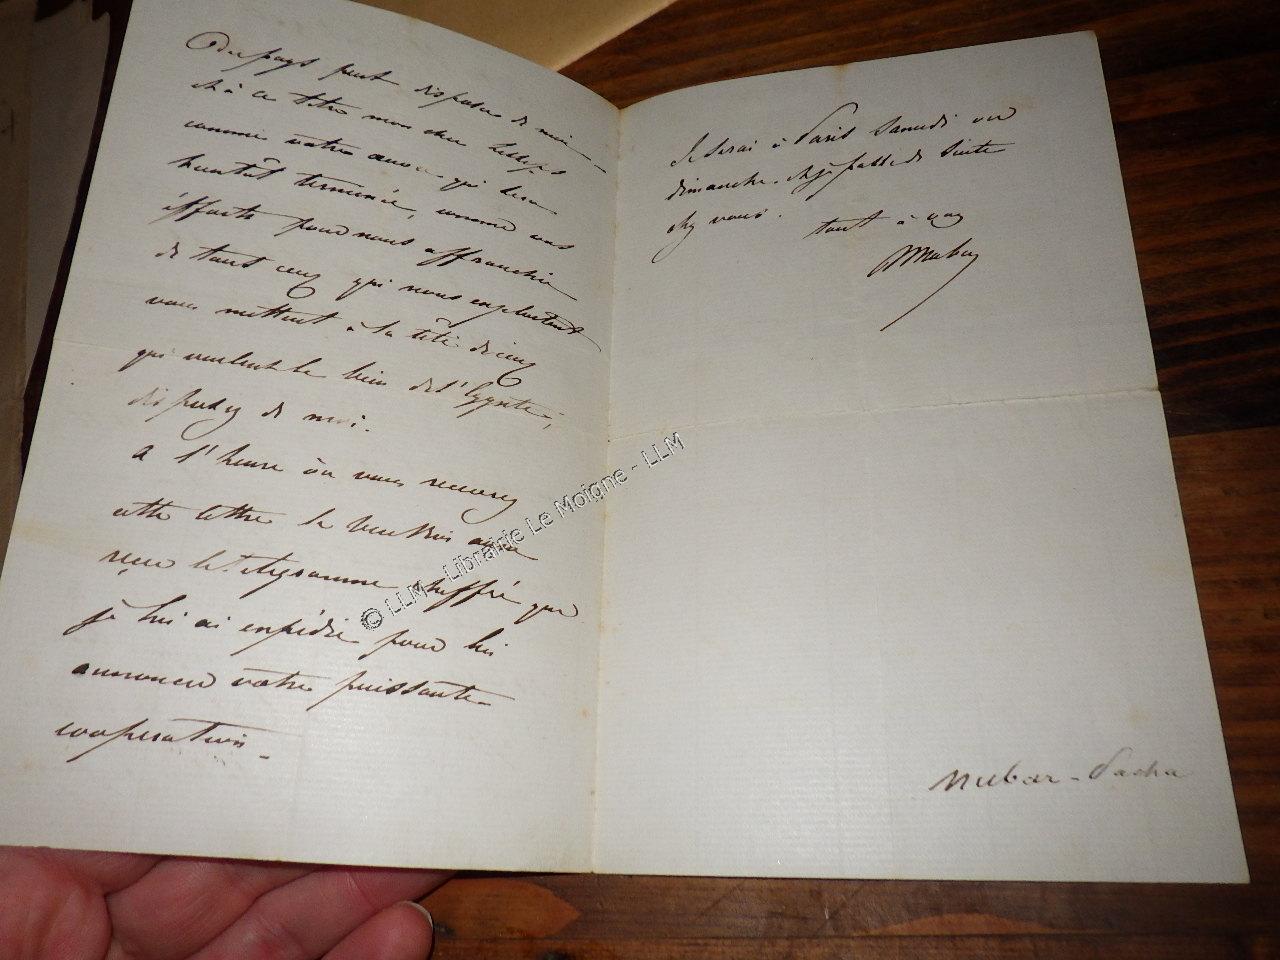 du pays peut disposer de moi —
et à ce titre mon cher Lesseps
comme votre œuvre qui sera
bientôt terminée, comme vos
efforts pour nous affranchir
de tous ceux qui nous exploitent
vous mettent à la tête de ceux
qui veulent le bien de l'Egypte,
disposez de moi.
A l'heure où vous recevrez
cette lettre le aura
reçu le télégramme chiffré que
je lui ai expédié pour lui
annoncer votre puissante
coopération.
Je serai à Paris samedi ou
dimanche. et je passe de suite
chez vous.
tout à vous
Nubar
Nubar-Pacha
© LLM - Librairie Le Moigne - LLM